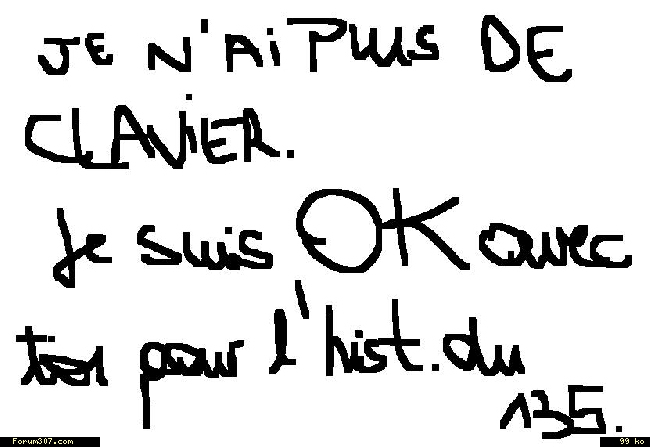 JE N'AI PLUS DE
CLAVIER.
Je suis OK avec
toi pour l'hist. du
135.
Forum307.com
99 ko